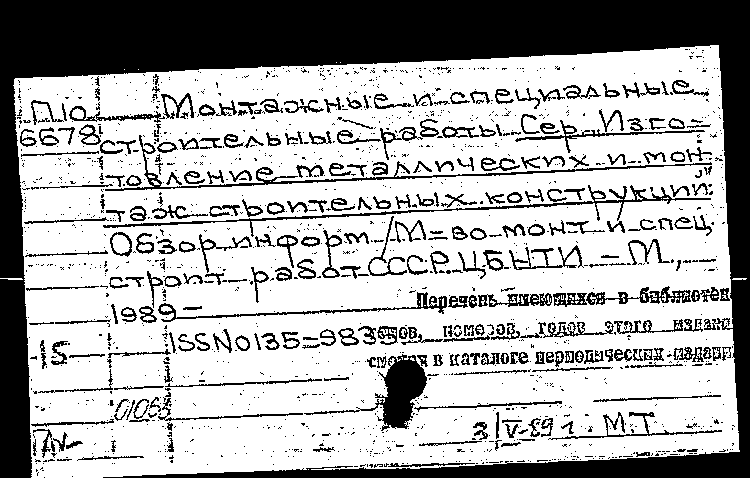 П10 Монтажные и специальные
6678 строительные работы Сер. „Изго=
товление металлических и мон-
таж строительных конструкций":
Обзор. информ / М=во монт и спец.
строит работ СССР, ЦБНТИ - М.,
1989-
Перечень имеющихся в библиотек
15 ISSN 0135=983 номеров, годов этого издани
в каталоге периодических издани
01063
3/V-89 г. М.Т.